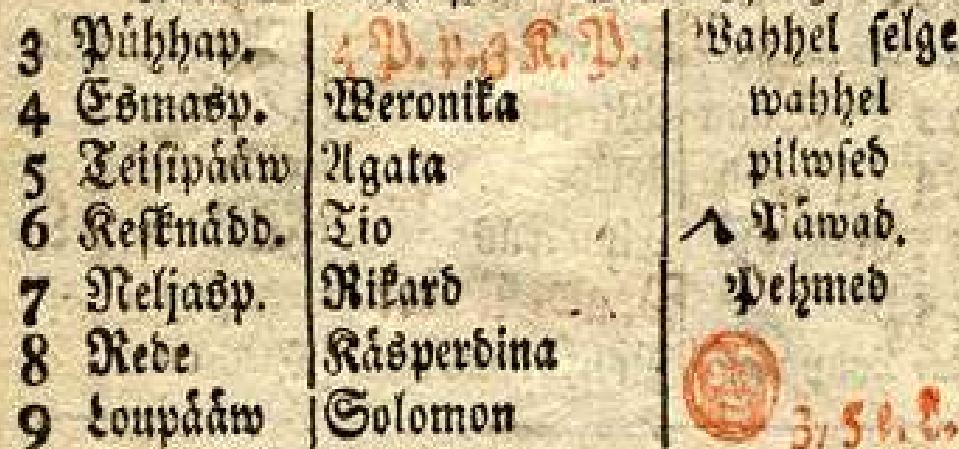 3 Pühhap. 4 P. p. 3 K. P. Wahhel selge
4 Esmasp. Weronika wahhel
5 Teisipääw Agata pilwsed
6 Kesknädd. Tio Päwad.
7 Neljasp. Rikard Pehmed
8 Rede Käsperdina
9 Loupääw Solomon 3, 5 e. L.